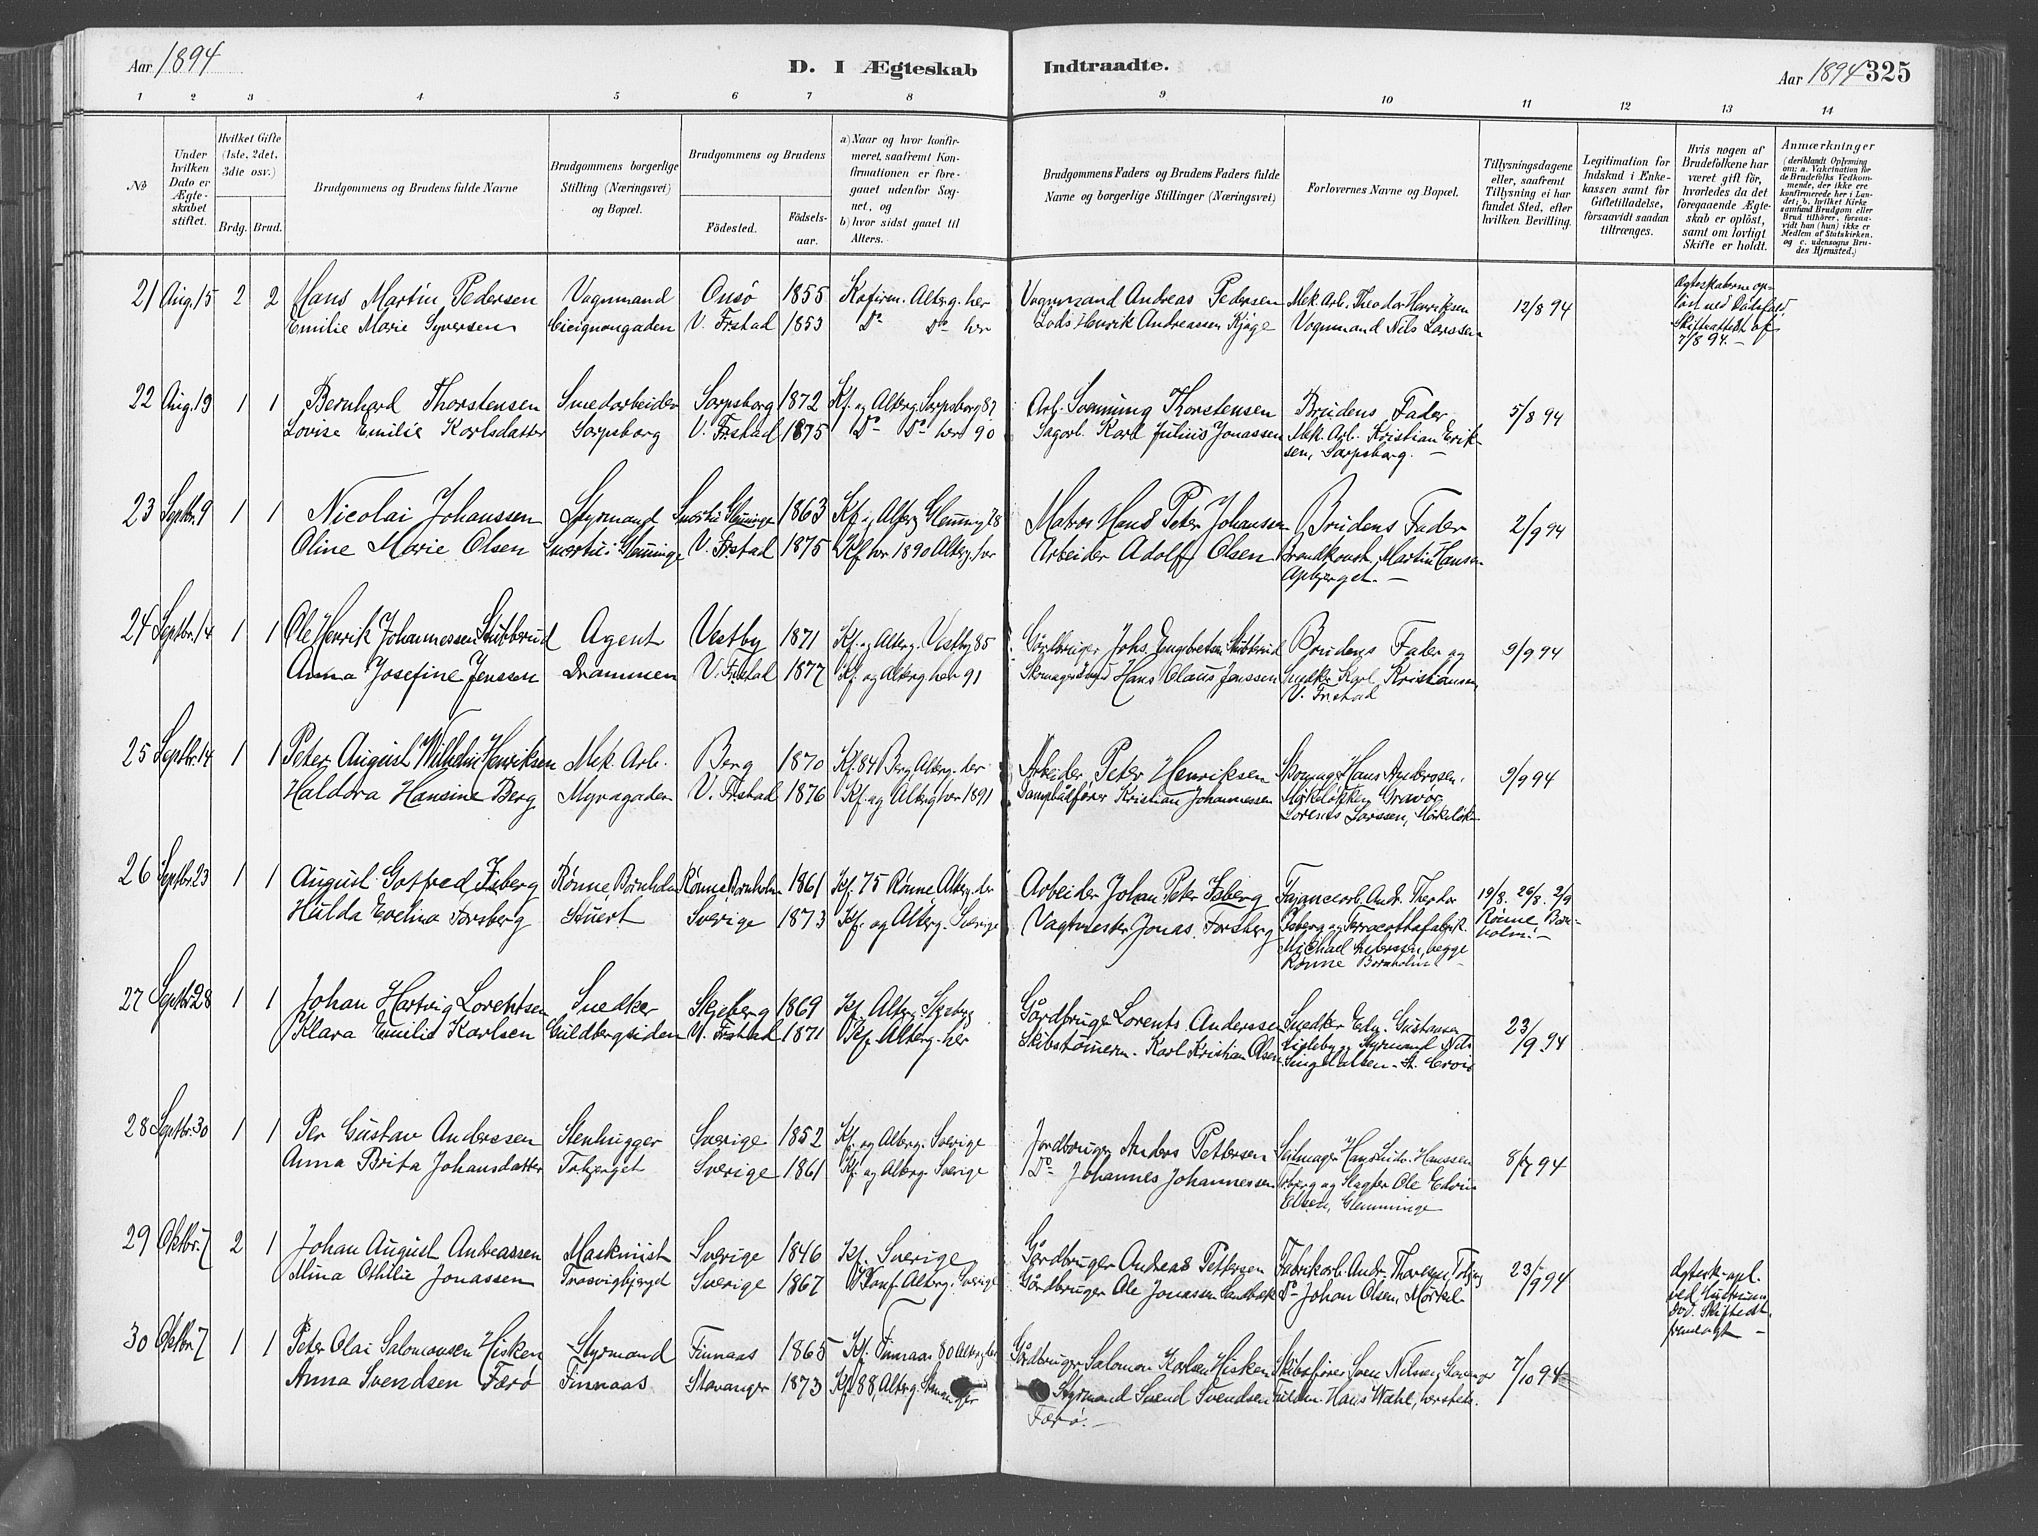 Aar 1894
D. I Ægteskab Indtraadte.
Aar 1894 325
1 2 3 4 5 6 7 8 9 10 11 12 13 14
№
Under hvilken Dato er Ægteskabet stiftet.
Hvilket Gifte (1ste, 2det, 3die osv.)
Brdg. Brud.
Brudgommens og Brudens fulde Navne
Brudgommens borgerlige Stilling (Næringsvei) og Bopæl.
Brudgommens og Brudens
Fødested. Fødselsaar.
a) Naar og hvor konfirmeret, saafremt Konfirmationen er foregaaet udenfor Sognet, og
b) hvor sidst gaaet til Alters.
Brudgommens Faders og Brudens Faders fulde Navne og borgerlige Stillinger (Næringsvei)
Forlovernes Navne og Bopæl.
Tillysningsdagene eller, saafremt Tillysning ei har fundet Sted, efter hvilken Bevilling.
Legitimation for Indskud i Enkekassen samt for Giftetilladelse, forsaavidt saadan tiltrænges.
Hvis nogen af Brudefolkene har været gift før, hvorledes da det foregaaende Ægteskab er opløst, samt om lovligt Skifte er holdt.
Anmærkninger
(deriblandt Oplysning om: a. Vaccination for de Brudefolks Vedkommende, der ikke ere konfirmerede her i Landet; b. hvilket Kirkesamfund Brudgom eller Brud tilhører, forsaavidt han (hun) ikke er Medlem af Statskirken. og c. udensogns Brudes Hjemsted.)
21 Aug. 15 2 2 Hans Martin Pedersen Vognmand Onsø 1855 Kofirm. Alterg. her Vognmand Andreas Pedersen Mek. Arb. Theodor Henriksen 12/8 94 Ægteskaberne op-
Emilie Marie Syversen Cicignongaden V. Frstad 1853 Do Do her Lods Henrik Andreassen Kjøge Vognmand Nils Larssen løst ved Dødsfald,
Skifteattest af
7/8 94.
22 Aug. 19 1 1 Bernhard Thorstensen Smedarbeider Sarpsborg 1872 Kf. og Alterg. Sarpsborg 87 Arb. Svenning Thorstensen Brudens Fader 5/8 94
Lovise Emilie Karlsdatter Sarpsborg V. Frstad 1875 Do Do her 90 Sagarb. Karl Julius Jonassen Mek. Arb. Kristian Erik-
sen, Sarpsborg.
23 Septbr. 9 1 1 Nicolai Johanssen Styrmand Glemminge 1863 Kf. og Alterg Glemmg 78 Matros Hans Peter Johansen Brudens Fader 2/9 94
Oline Marie Olsen Glemminge V. Frstad 1875 Kf her 1890 Alterg. her Arbeider Adolf Olsen Martin Hansen
Apbjerget.
24 Septbr. 14 1 1 Ole Henrik Johannessen Stubberud Agent Vestby 1871 Kf. og Alterg. Vestby 85 Gårdbruger Johs. Engebretsen Stubberud Brudens Fader og 9/9 94
Anna Josefine Jenssen Drammen V. Frstad 1877 Kf. og Alterg. her 91 Hans Olaus Jenssen Snedker Karl Kristiansen,
V. Frstad
25 Septbr. 14 1 1 Peter August Wilhelm Henriksen Mek. Arb. Berg 1870 Kf. 84 Berg Alterg. der Arbeider Peter Henriksen Skomager Hans Ambrosen, 9/9 94
Haldora Hansine Berg Myragaden V. Frstad 1876 Kf. og Alterg her 1891 Dampbådfører Kristian Johannessen Mørkeløkken Gravør
Lorents Larssen, Mørkeløk-
26 Septbr. 23 1 1 August Gotfred Isberg Rønne Bornholm Rønne Bornholm 1861 Kf. 75 Rønne Alterg. der Arbeider Johan Peter Isberg Fajancearb. Andr. Theodor 19/8. 26/8. 2/9
Hulda Evelina Forsberg Sverige 1873 Kf. og Alterg. Sverige Vagtmester Jonas Forsberg Isberg og Terracottafabrik. Rønne Born-
Michael Andersen, begge holm.
Rønne Bornholm
27 Septbr. 28 1 1 Johan Hartvig Lorentsen Snedker Skjeberg 1869 Kf. Alterg. Skjeberg Gårdbruger Lorents Anderssen Snedker Edv. Gustavsen 23/9. 94
Klara Emilie Karlsen Guldbergsiden V. Frstad 1871 Kf. Alterg. her Skibstømerm. Karl Kristian Olsen Lisleby og Styrmand Nils
28 Septbr. 30 1 1 Per Gustav Anderssen Stenhugger Sverige 1852 Kf. og Alterg. Sverige Jordbruger Anders Pettersen Seilmager Hans Ludv. Hanssen 8/7 94
Anna Brita Johansdatter Torbjerget Sverige 1861 Kf. og Alterg. Sverige Do Johannes Johannessen og Slagter Ole Edvin
Olsen, Glemminge
29 Oktbr. 7 2 1 Johan August Andreassen Maskinist Sverige 1846 Kf. Sverige Gårdbruger Andreas Pettersen Fabrikarb. Andr. Thoresen, 23/9 94 Ægtesk. opl.
Mina Othilie Jonassen Trosvigbjerget Sverige 1867 Konf. Alterg. Sverige Gårdbruger Ole Jonassen Sandbæk Do Johan Olsen, Mørkel. ved Hustruens
Død. Skifteatt
fremlagt
30 Oktbr 7 1 1 Peter Olai Salomonsen Hisken Styrmand Finnaas 1865 Kf. Finnaas 80 Alterg. der Gårdbruger Salomon Karlsen Hisken Skibsfører Sven Nilsen, 7/10 94
Anna Svendsen Færø Finnaas Stavanger 1873 Kf. 88, Alterg. Stavanger Styrmand Svend Svendsen Hans Wahl,
Færø.